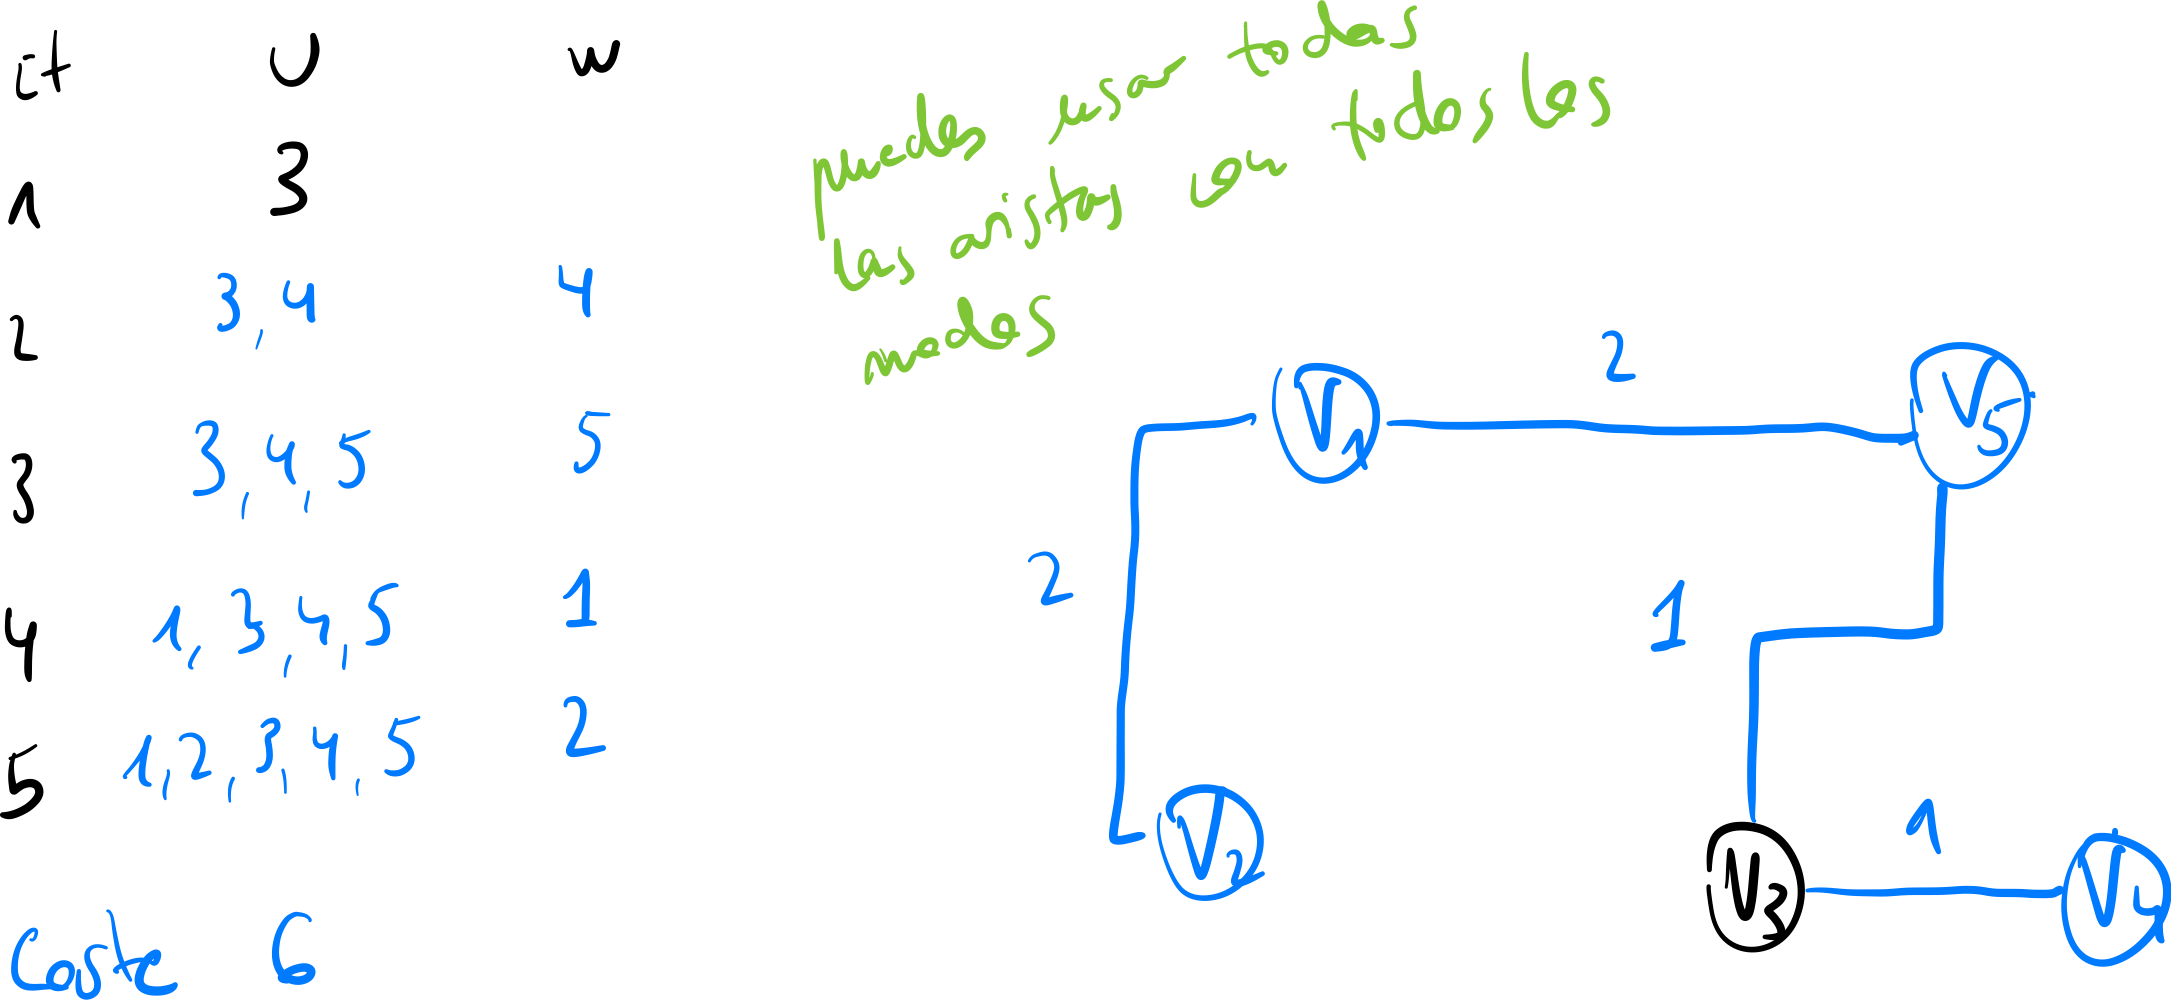 it U w
1 3
2 3, 4 4
3 3, 4, 5 5
4 1, 3, 4, 5 1
5 1, 2, 3, 4, 5 2
Coste 6
puedes usar todas
las aristas con todos los
nodos
2
V1
V5
2
1
V2
1
V3
V4